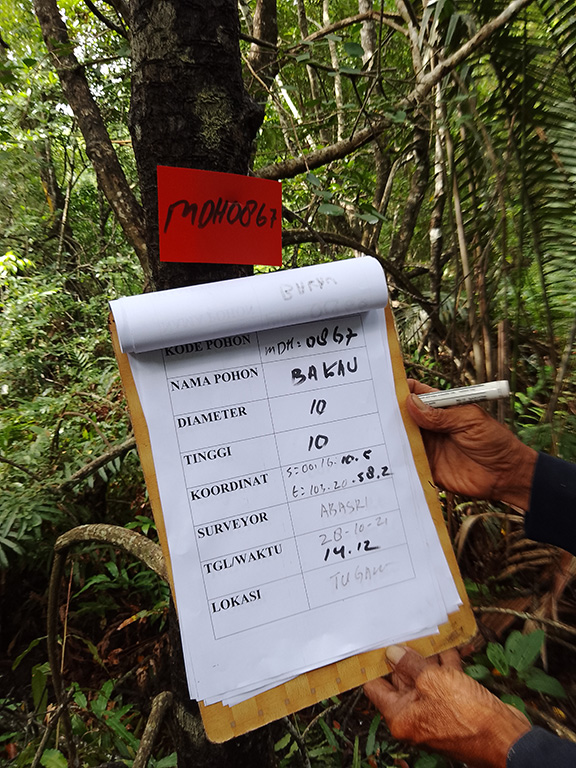 MDH0867
BAKAU
KODE POHON MDH:0867
NAMA POHON BAKAU
DIAMETER 10
TINGGI 10
KOORDINAT S=00.16.10.5
E=103.20.58.2
SURVEYOR ABASRI
TGL/WAKTU 28-10-21
14.12
LOKASI